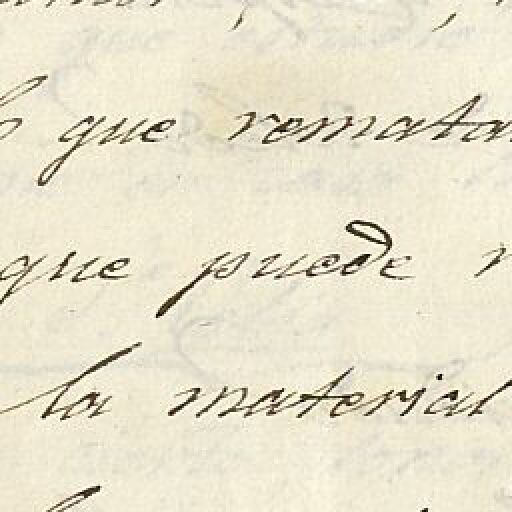 que remata
que puede
la material